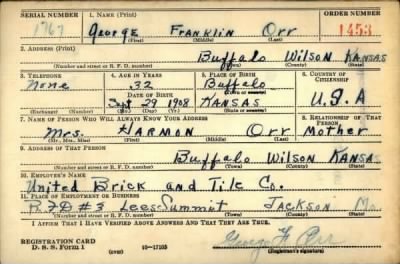 SERIAL NUMBER 1. NAME (Print) ORDER NUMBER
1767 George Franklin Orr 1453
(First) (Middle) (Last)
2. ADDRESS (Print)
Buffalo Wilson Kansas
(Number and street or R. F. D. number) (Town) (County) (State)
3. TELEPHONE 4. AGE IN YEARS 5. PLACE OF BIRTH 6. COUNTRY OF CITIZENSHIP
None 32 Buffalo
DATE OF BIRTH (Town or county)
Sept 29 1908 Kansas U.S.A
(Exchange) (Number) (Mo.) (Day) (Yr.) (State or country)
7. NAME OF PERSON WHO WILL ALWAYS KNOW YOUR ADDRESS 8. RELATIONSHIP OF THAT PERSON
Mrs. Harmon Orr Mother
(Mr., Mrs., Miss) (First) (Middle) (Last)
9. ADDRESS OF THAT PERSON
Buffalo Wilson Kansas
(Number and street or R. F. D. number) (Town) (County) (State)
10. EMPLOYER'S NAME
United Brick and Tile Co.
11. PLACE OF EMPLOYMENT OR BUSINESS
R.F.D #3 Lees Summit Jackson Mo.
(Number and street or R. F. D. number) (Town) (County) (State)
I AFFIRM THAT I HAVE VERIFIED ABOVE ANSWERS AND THAT THEY ARE TRUE.
REGISTRATION CARD George F. Orr
D. S. S. Form 1 (over) 16—17105 (Registrant's signature)